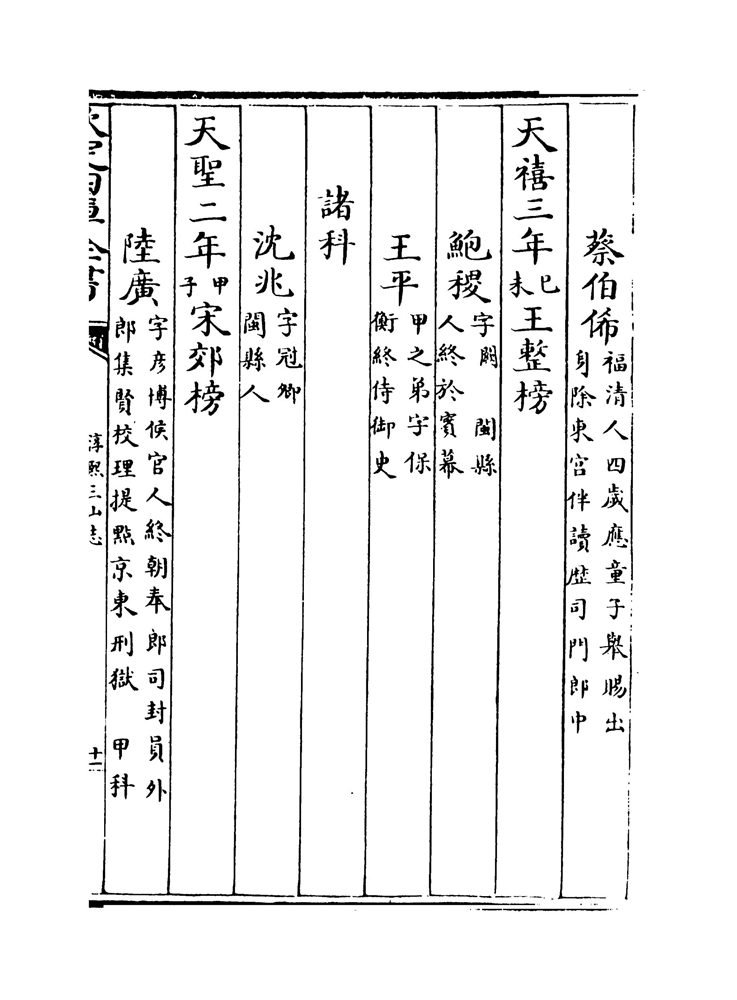 蔡伯俙福清人四歲應童子舉賜出身除東宮伴讀歴司門郎中
天禧三年己未王整榜
鮑稷字闕　閩縣人終於賓幕
王平甲之弟字保衡終侍御史
諸科
沈兆字冠卿閩縣人
天聖二年甲子宋郊榜
陸廣字彦博侯官人終朝奉郎司封員外郎集賢校理提㸃京東刑獄　甲科
欽定四庫全書
淳熙三山志
十一